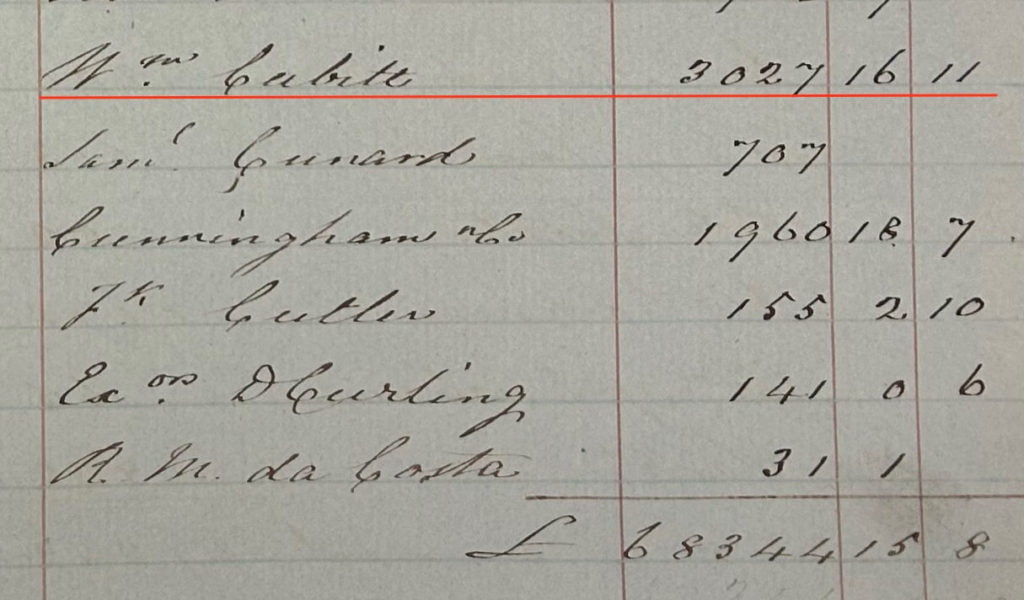 Wm. Cubitt 3027 16 11
Saml. Cunard 707
Cunningham & Co 1960 18 7
Fk Cutler 155 2 10
Exors. D Curling 141 0 6
R. M. da Costa 31 1
£ 68344 15 8